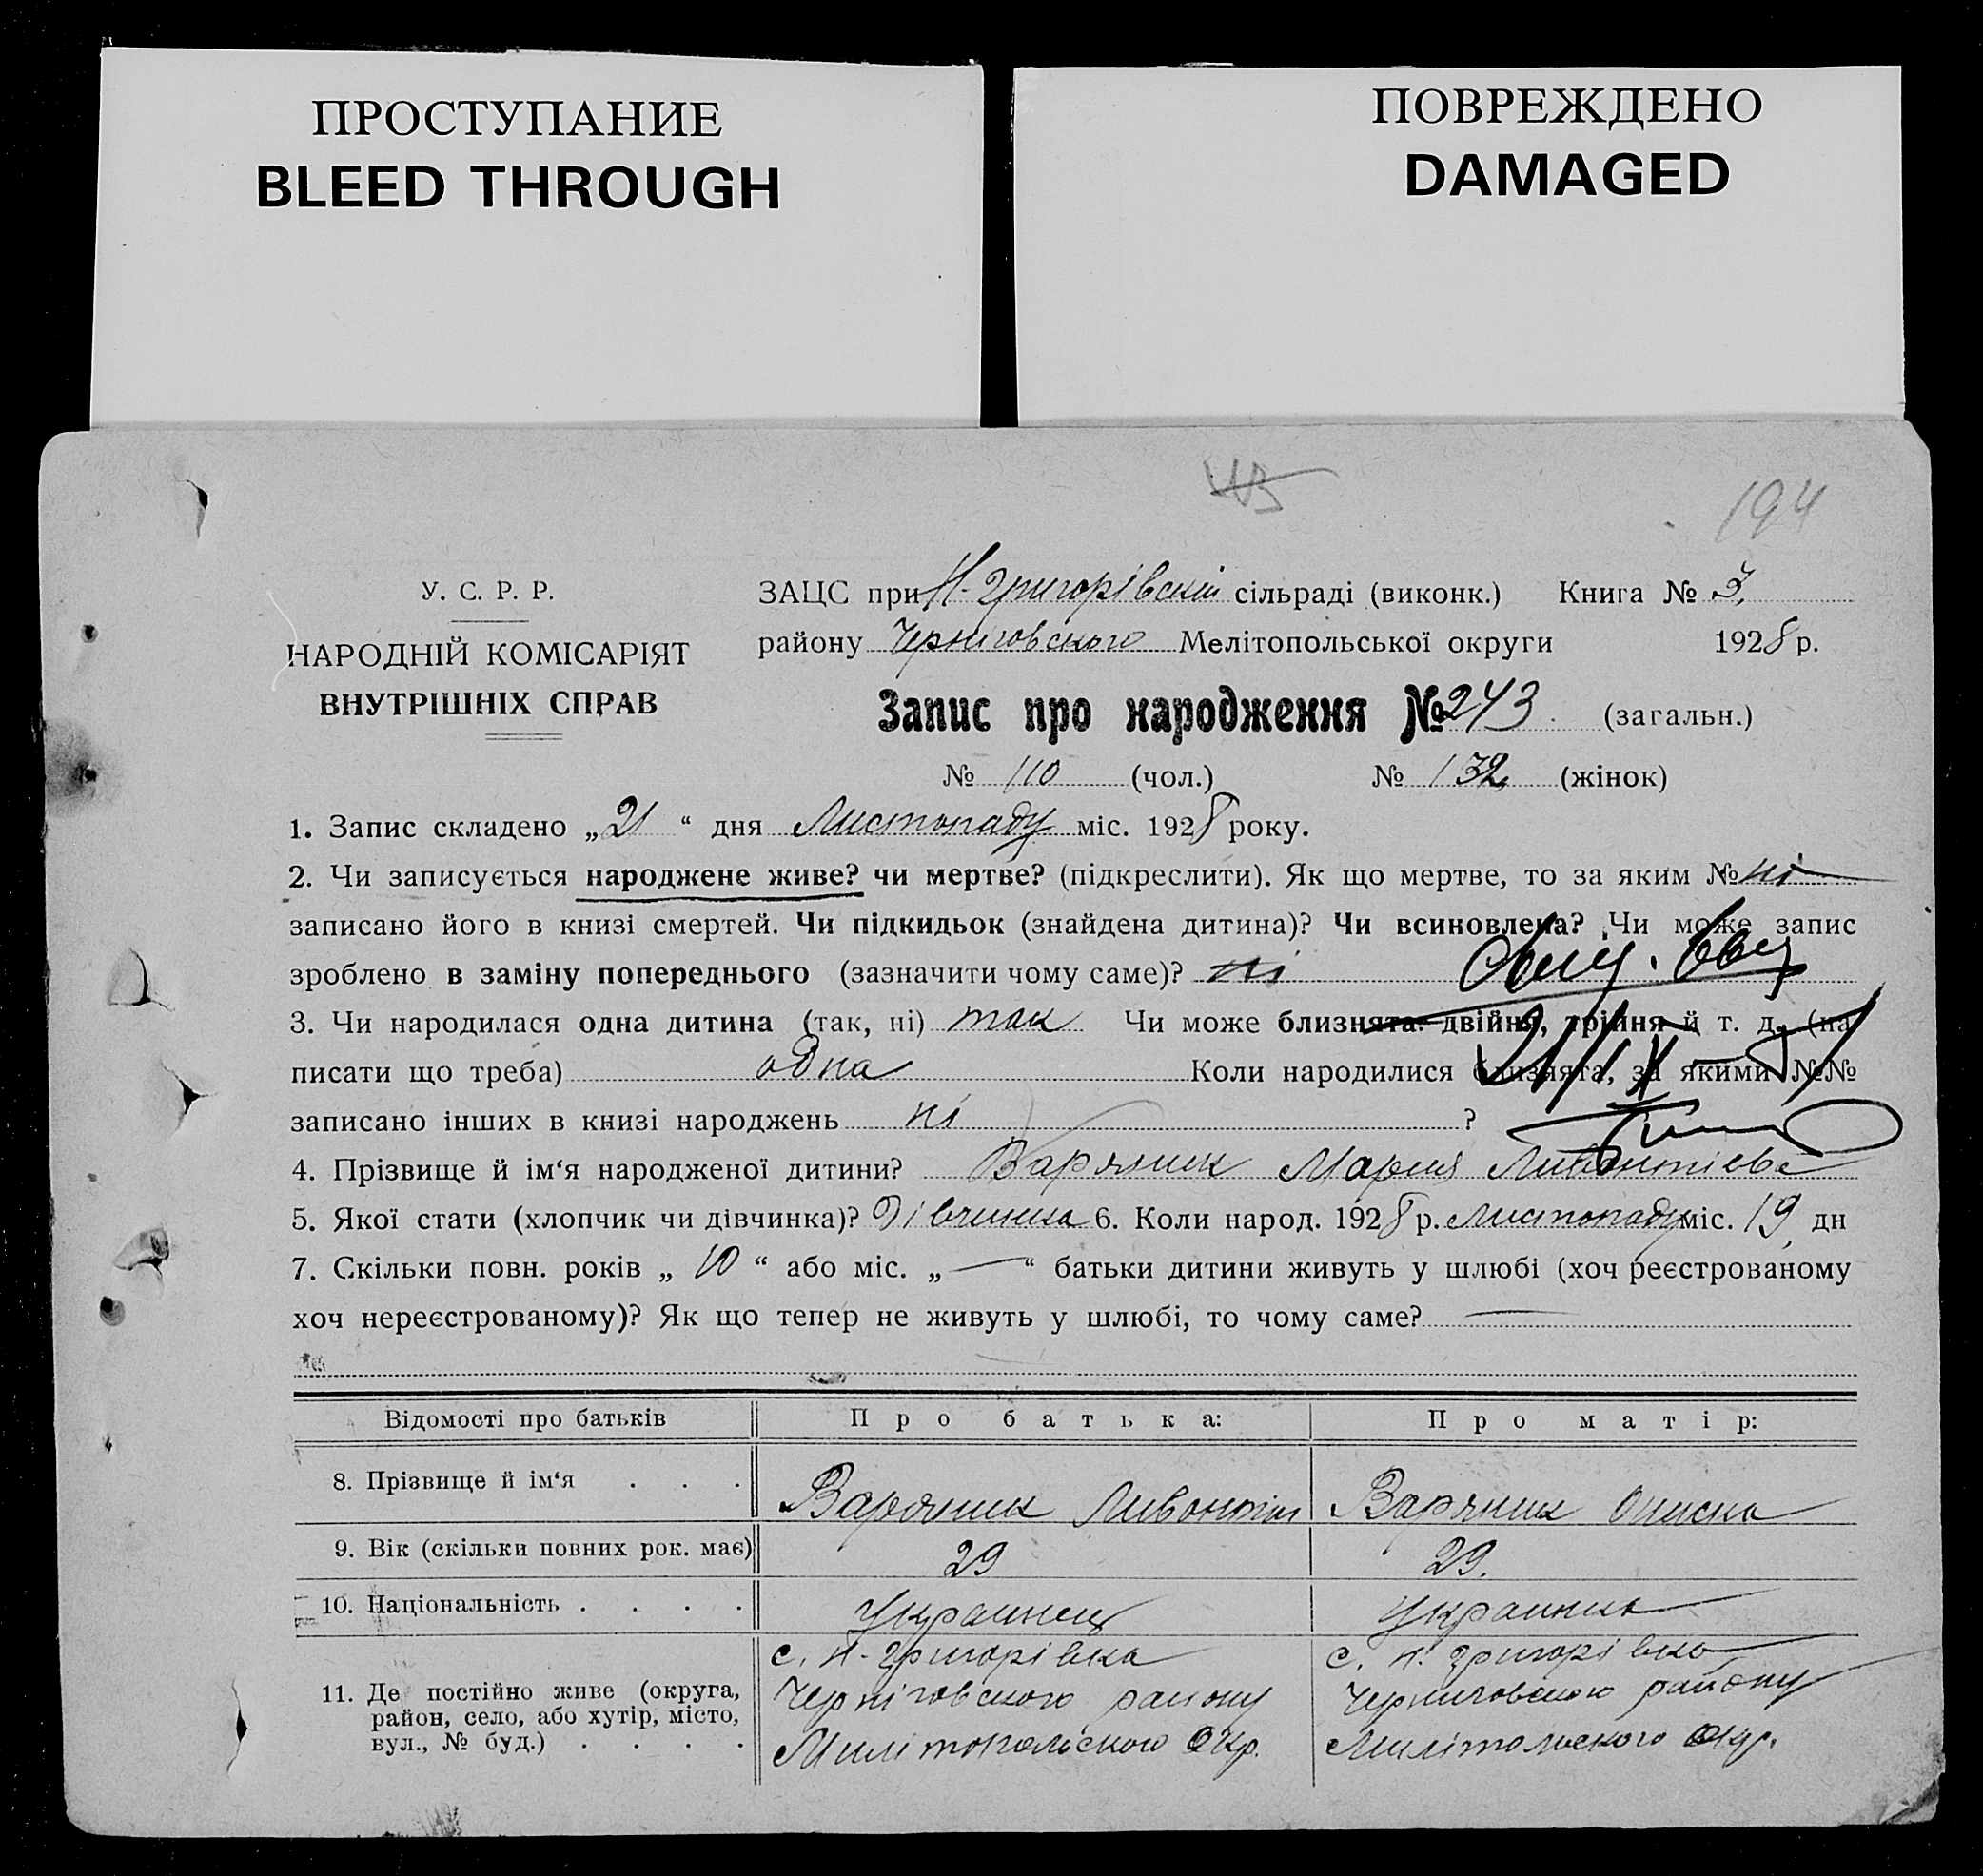 ПРОСТУПАНИЕ
BLEED THROUGH
ПОВРЕЖДЕНО
DAMAGED
194
У. С. Р. Р.
НАРОДНІЙ КОМІСАРІЯТ
ВНУТРІШНІХ СПРАВ
ЗАЦС при Н-Григорівській сільраді (виконк.) Книга № 3
району Черніговского Мелітопольської округи 1928 р.
Запис про народження № 243 (загальн.)
№ 110 (чол.) № 132 (жінок)
1. Запис складено „21“ дня Листопаду міс. 1928 року.
2. Чи записується народжене живе? чи мертве? (підкреслити). Як що мертве, то за яким № ні
записано його в книзі смертей. Чи підкидьок (знайдена дитина)? Чи всиновлена? Чи може запис
зроблено в заміну попереднього (зазначити чому саме)? ні
3. Чи народилася одна дитина (так, ні) так Чи може близнята: двійня, трійня й т. д. (на
писати що треба) одна Коли народилися близнята, за якими №№
записано інших в книзі народжень ні ?
4. Прізвище й ім‘я народженої дитини? Варяник Мария
5. Якої стати (хлопчик чи дівчинка)? Дівчинка 6. Коли народ. 1928 р. Листопаду міс. 19 дн
7. Скільки повн. років „10“ або міс. „—“ батьки дитини живуть у шлюбі (хоч реєстрованому
хоч нереєстрованому)? Як що тепер не живуть у шлюбі, то чому саме? —
Відомості про батьків Про батька: Про матір:
8. Прізвище й ім‘я . . . Варяник Ливонтій Варяник Описка
9. Вік (скільки повних рок. має) 29 29.
10. Національність . . . . Украинец Украинка
11. Де постійно живе (округа,
район, село, або хутір, місто,
вул., № буд.) . . . .
с. Н-Григорівка
Черніговского району
Милітопольского Окр.
с. Н. Григорівка
Черниговского району
Милітольского Окр.